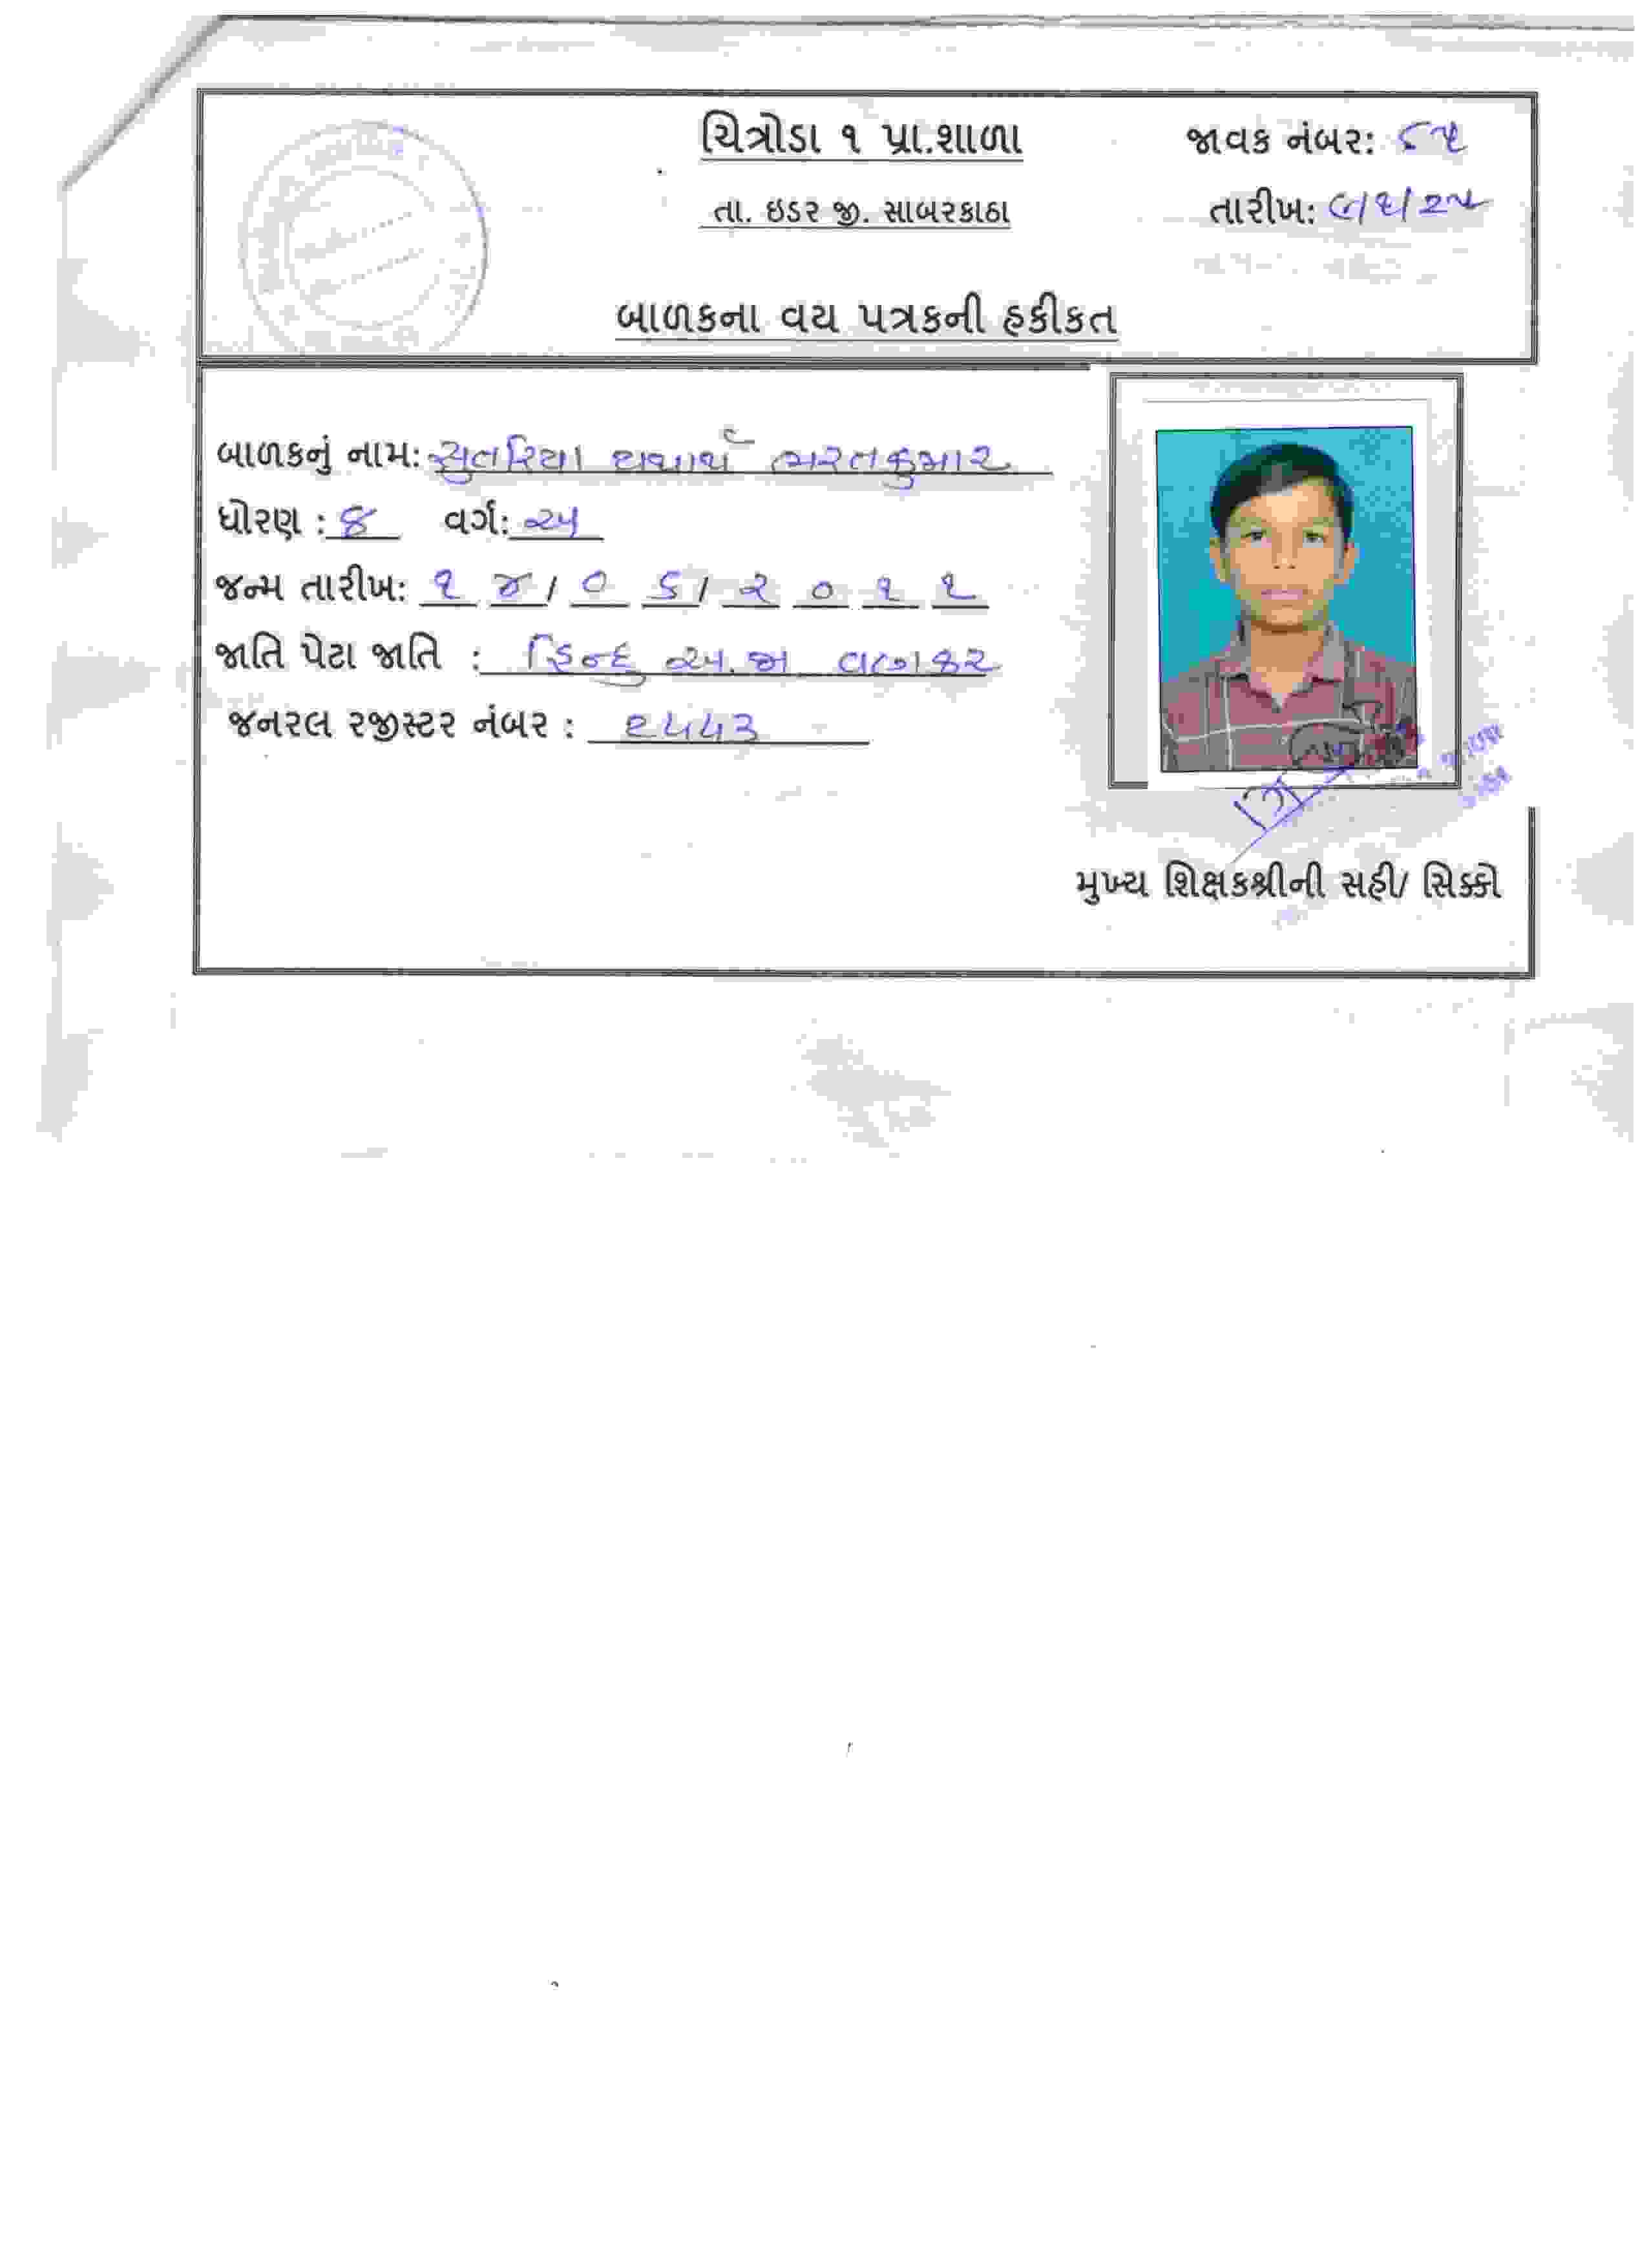 ચિત્રોડા ૧ પ્રા.શાળા
જાવક નંબર:
તા. ઇડર જી. સાબરકાઠા
તારીખ:
બાળકના વય પત્રકની હકીકત
બાળકનું નામ: સુતરિયા યથાર્થ ભરતકુમાર
ધોરણ : ૪ વર્ગ: અ
જન્મ તારીખ: ૧ ૪ / ૦ ૬ / ૨ ૦ ૧ ૧
જાતિ પેટા જાતિ : હિન્દુ અ.જા વણકર
જનરલ રજીસ્ટર નંબર : ૬૫૫૩
મુખ્ય શિક્ષકશ્રીની સહી/ સિક્કો